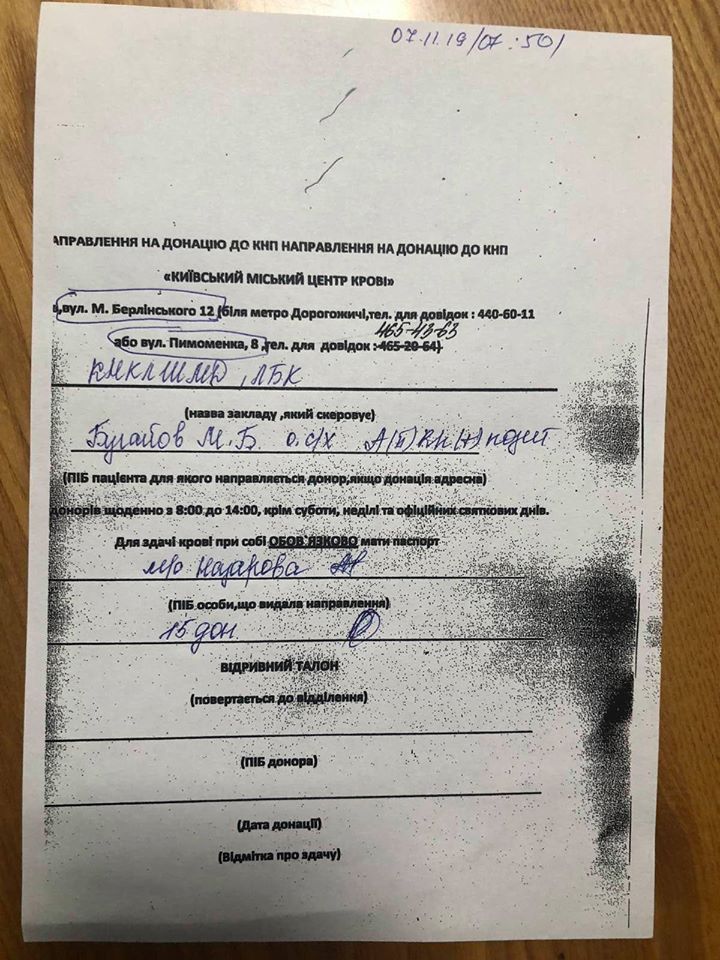 07.11.19/07:50/
АПРАВЛЕННЯ НА ДОНАЦІЮ ДО КНП НАПРАВЛЕННЯ НА ДОНАЦІЮ ДО КНП
«КИЇВСЬКИЙ МІСЬКИЙ ЦЕНТР КРОВІ»
,вул. М. Берлінського 12 (біля метро Дорогожичі,тел. для довідок : 440-60-11
465-43-63
або вул. Пимоненка, 8 ,тел. для довідок :465-20-64)
КМКЛШМД, ЛБК
(назва закладу ,який скеровує)
Бугайов М.Б о.с/х А(ІІ) Rh(+)
(ПІБ пацієнта для якого направляється донор,якщо донація адресна)
донорів щоденно з 8:00 до 14:00, крім суботи, неділі та офіційних святкових днів.
Для здачі крові при собі ОБОВ`ЯЗКОВО мати паспорт
м/с Назарова
(ПІБ особи,що видала направлення)
15 дон
ВІДРИВНИЙ ТАЛОН
(повертається до відділення)
(ПІБ донора)
(Дата донації)
(Відмітка про здачу)